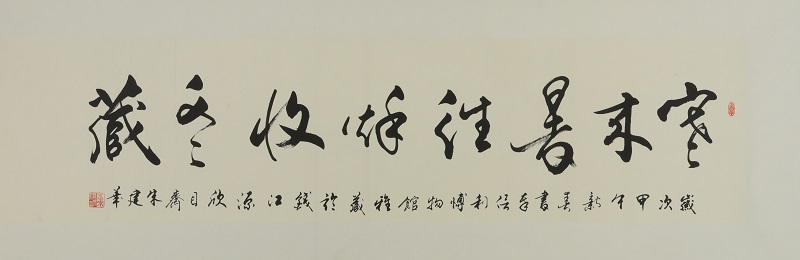 寒來暑往秋收冬藏
歲次甲午新春書奉信利博物館雅藏於錢江源欣目齋朱建華